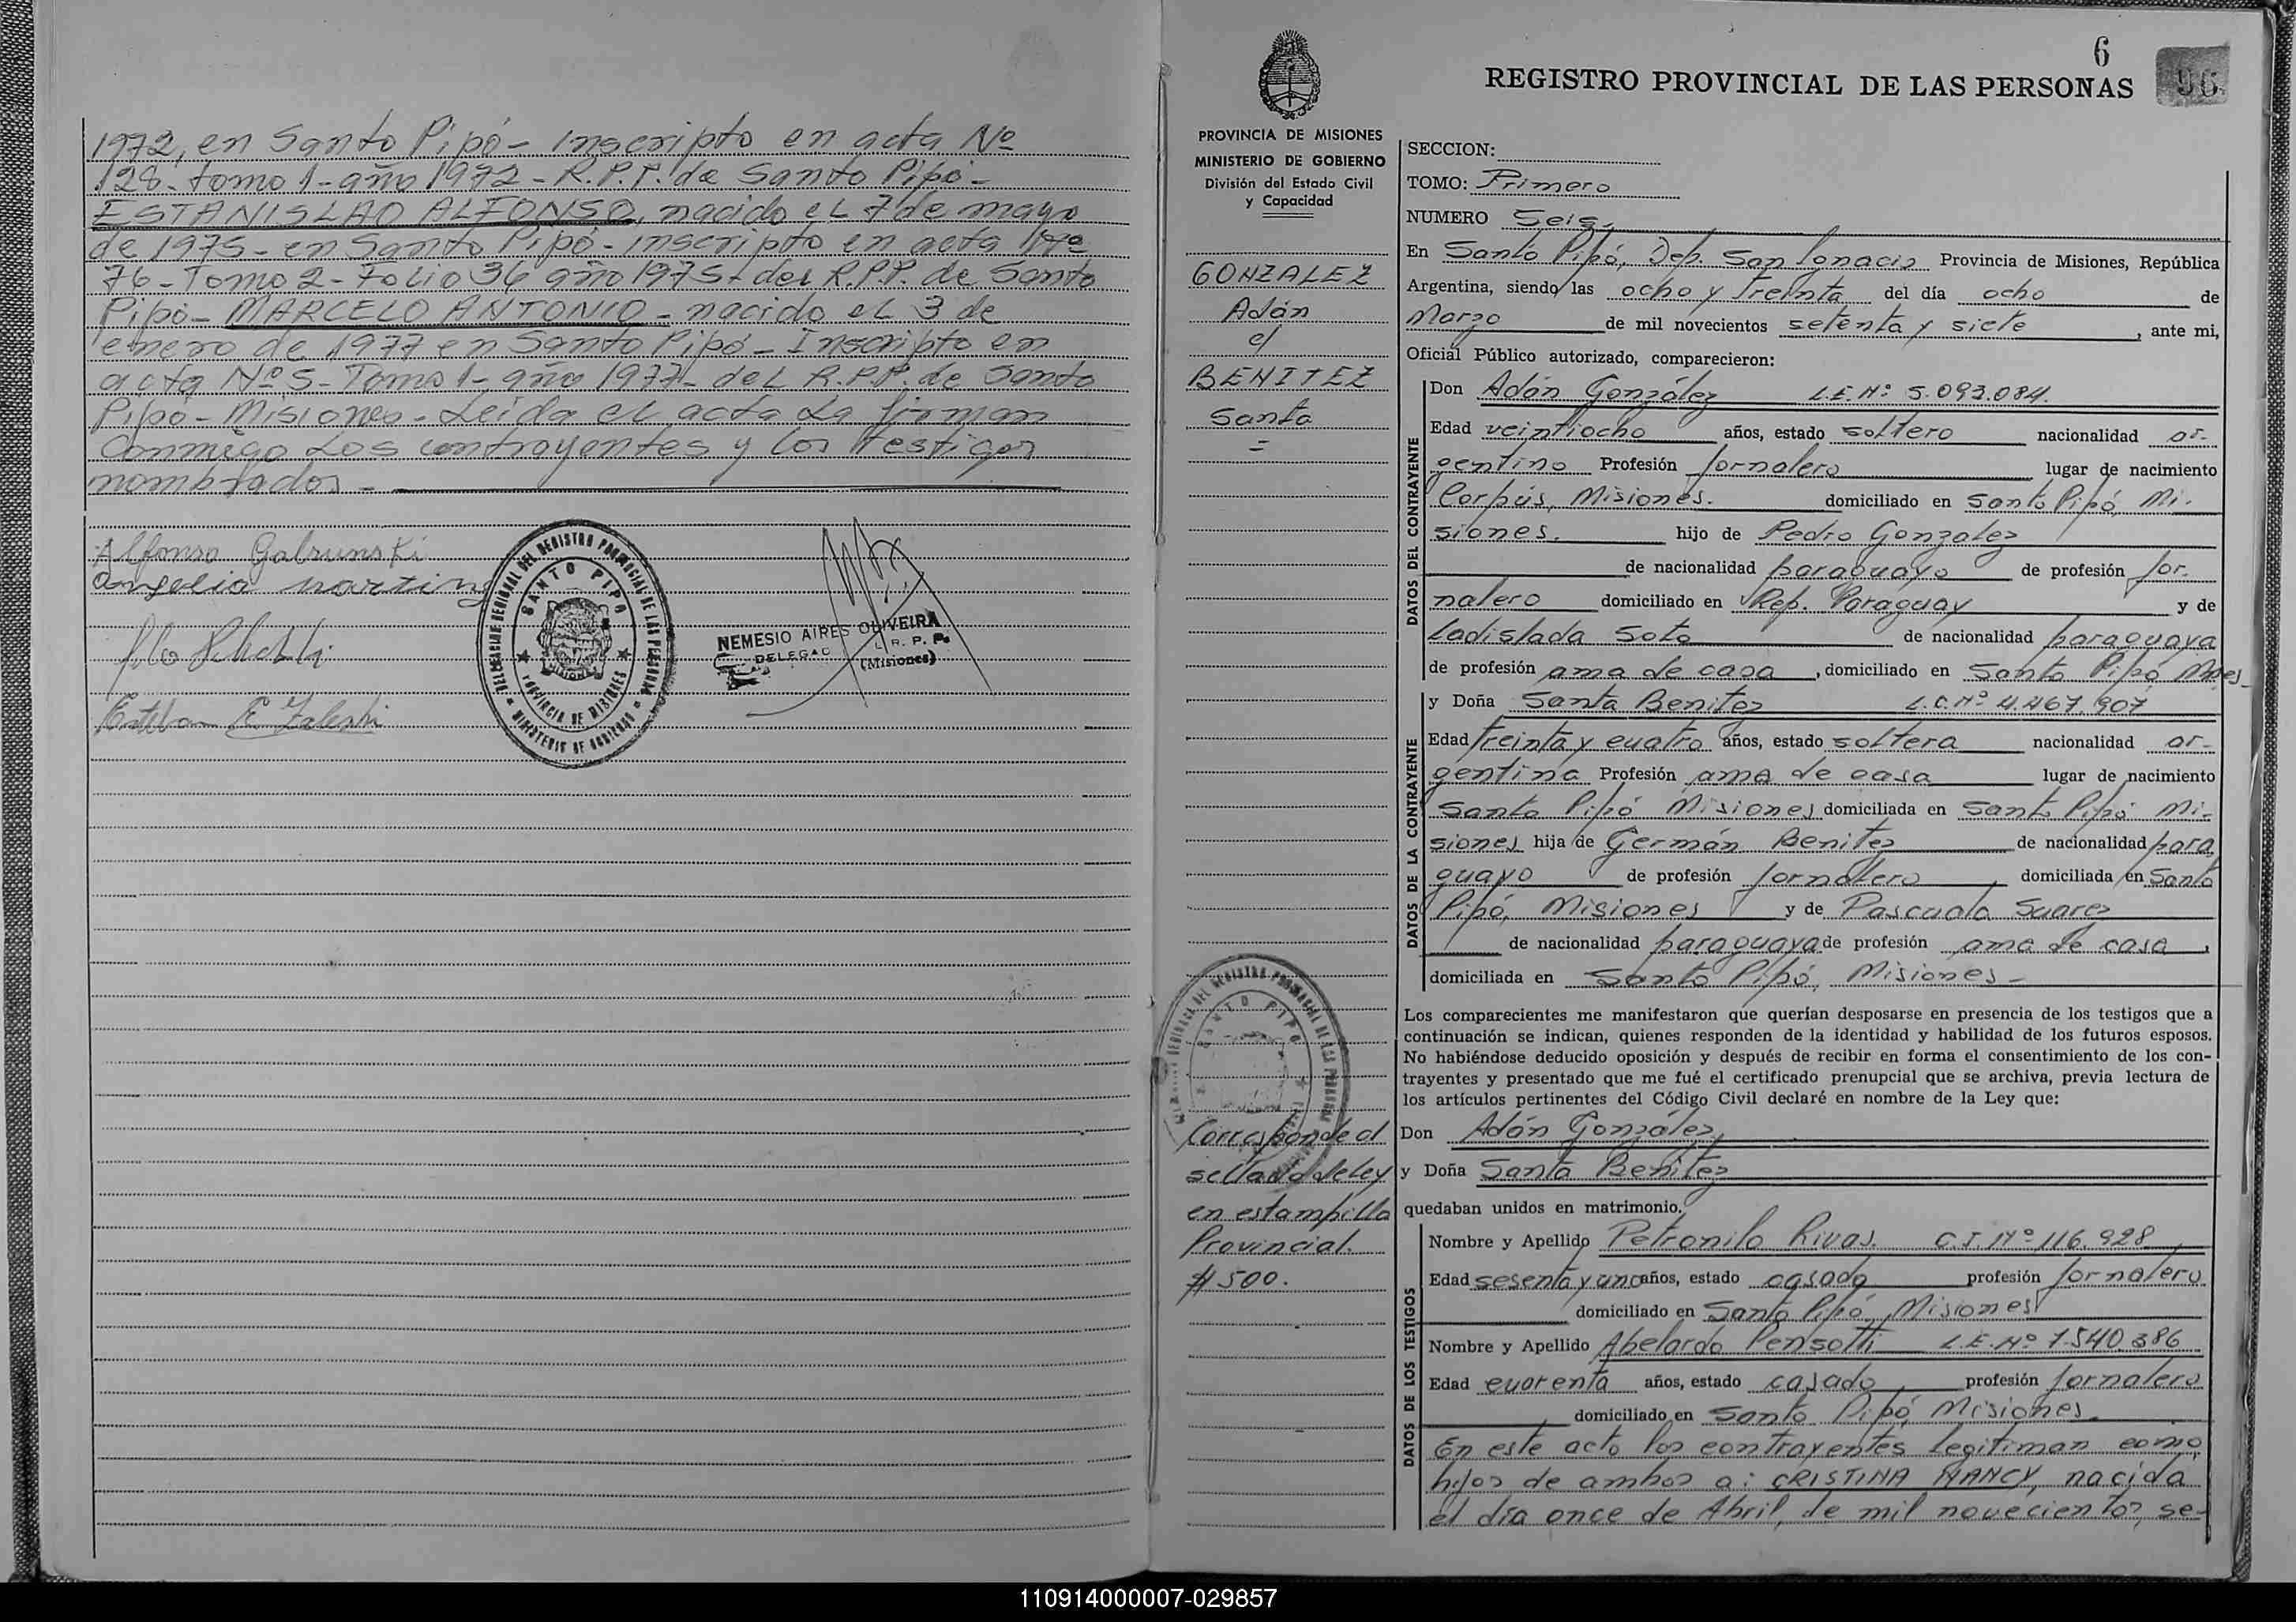 1972, en Santo Pipó - Inscripto en acta Nº
128 - tomo 1 - año 1972 - R.P.P. de Santo Pipó -
ESTANISLAO ALFONSO, nacido el 7 de mayo
de 1975 - en Santo Pipó - inscripto en acta Nº
76 - Tomo 2 - Folio 36 año 1975 - del R.P.P. de Santo
Pipó - MARCELO ANTONIO - nacido el 3 de
enero de 1977 en Santo Pipó - Inscripto en
acta Nº 5 - Tomo 1 - año 1977 - del R.P.P. de Santo
Pipó - Misiones - Leida el acta la firman
conmigo los contrayentes y los testigos
nombrados -
Alfonso Galsunski
Esteban E Zaleski
DELEGACION REGIONAL DEL REGISTRO PROVINCIAL DE LAS PERSONAS
SANTO PIPO
MISIONES
PROVINCIA DE MISIONES
MINISTERIO DE GOBIERNO
NEMESIO AIRES OLIVEIRA
DELEGADO R. P. P.
(Misiones)
6
REGISTRO PROVINCIAL DE LAS PERSONAS
96
PROVINCIA DE MISIONES
MINISTERIO DE GOBIERNO
División del Estado Civil
y Capacidad
GONZALEZ
Adán
c/
BENITEZ
Santa
=
Corresponde al
sellado de Ley
en estampilla
Provincial.
$ 500.
SECCION:
TOMO: Primero
NUMERO Seis
En Santo Pipó, Dep. San Ignacio Provincia de Misiones, República
Argentina, siendo las ocho y treinta del día ocho de
Marzo de mil novecientos setenta y siete, ante mi,
Oficial Público autorizado, comparecieron:
DATOS DEL CONTRAYENTE
Don Adán González L.E. Nº 5.093.084.
Edad veintiocho años, estado soltero nacionalidad ar-
gentino Profesión Jornalero lugar de nacimiento
Corpús, Misiones. domiciliado en Santo Pipó, Mi-
siones. hijo de Pedro Gonzalez
de nacionalidad paraguayo de profesión jor-
nalero domiciliado en Rep. Paraguay y de
Ladislada Soto de nacionalidad paraguaya
de profesión ama de casa, domiciliado en Santo Pipó Mnes
DATOS DE LA CONTRAYENTE
y Doña Santa Benitez L.C. Nº 4.467.907
Edad treinta y cuatro años, estado soltera nacionalidad ar-
gentina Profesión ama de casa lugar de nacimiento
Santo Pipó Misiones domiciliada en Santo Pipó Mi-
siones hija de Germán Benitez de nacionalidad para
guayo de profesión Jornalero domiciliada en Santo
Pipó, Misiones y de Pascuala Suarez
de nacionalidad paraguaya de profesión ama de casa,
domiciliada en Santo Pipó, Misiones -
Los comparecientes me manifestaron que querían desposarse en presencia de los testigos que a
continuación se indican, quienes responden de la identidad y habilidad de los futuros esposos.
No habiéndose deducido oposición y después de recibir en forma el consentimiento de los con-
trayentes y presentado que me fué el certificado prenupcial que se archiva, previa lectura de
los artículos pertinentes del Código Civil declaré en nombre de la Ley que:
Don Adán González
y Doña Santa Benitez
quedaban unidos en matrimonio.
DATOS DE LOS TESTIGOS
Nombre y Apellido Petronilo Rivas. C.I. Nº 116.928
Edad sesenta y uno años, estado casado profesión jornalero
domiciliado en Santo Pipó, Misiones
Nombre y Apellido Abelardo Pensotti L.E. Nº 7.540.386
Edad cuarenta años, estado casado profesión Jornalero
domiciliado en Santo Pipó, Misiones.
En este acto los contrayentes legitiman como
hijos de ambos a: CRISTINA NANCY, nacida
el día once de Abril, de mil novecientos, se-
110914000007-029857